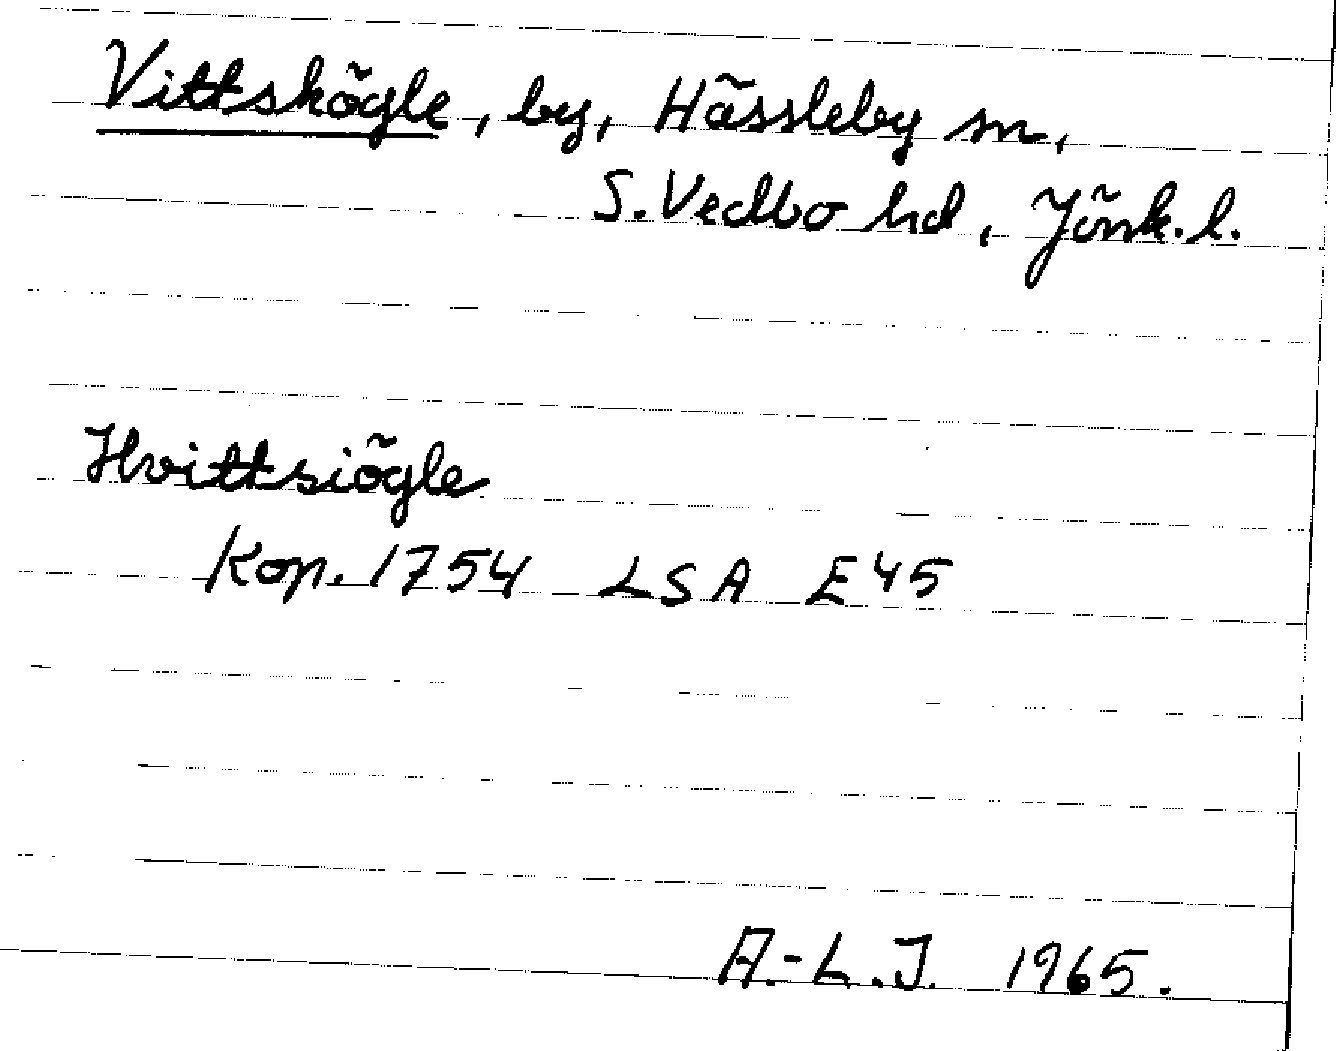 Vittskögle, by, Hässleby sn,
S. Vedbo hd, Jönk. l.
Hvittsiögle
Kop. 1754 LSA E45
A.-L.J. 1965.